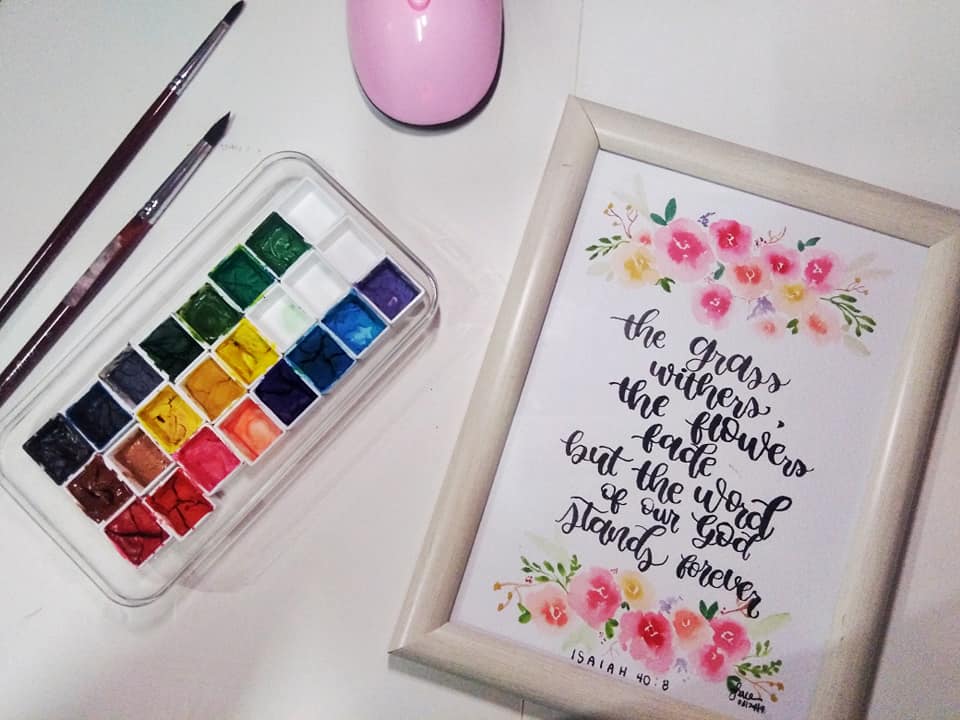 the grass
withers,
the flowers
fade
but the word
of our God
stands forever
ISAIAH 40:8